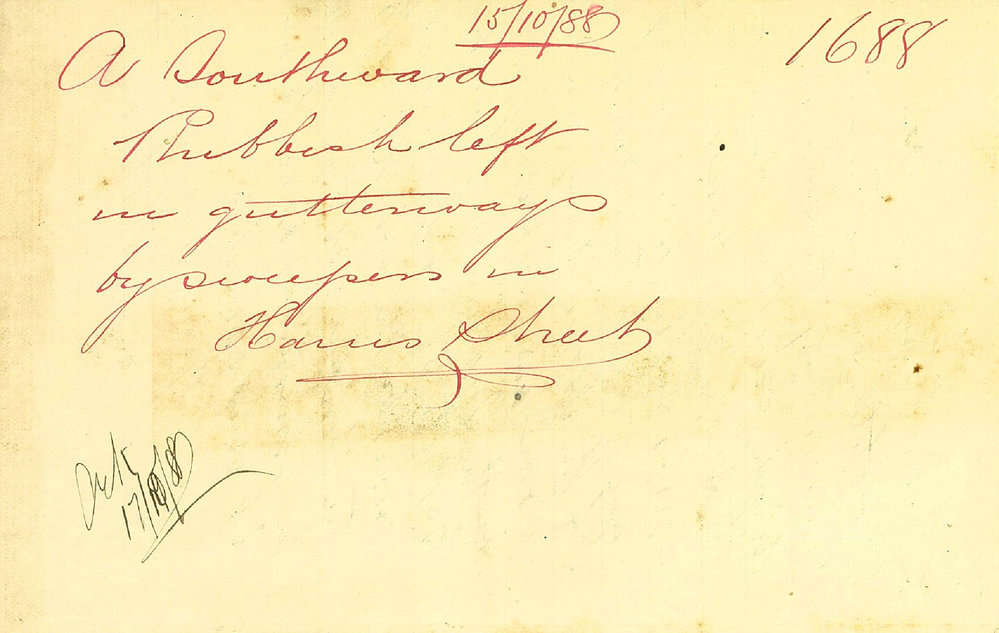 15/10/88
1688
A Southward
Rubbish left
in gutterways
by sweepers in
Harris Street
Ack
17/10/88